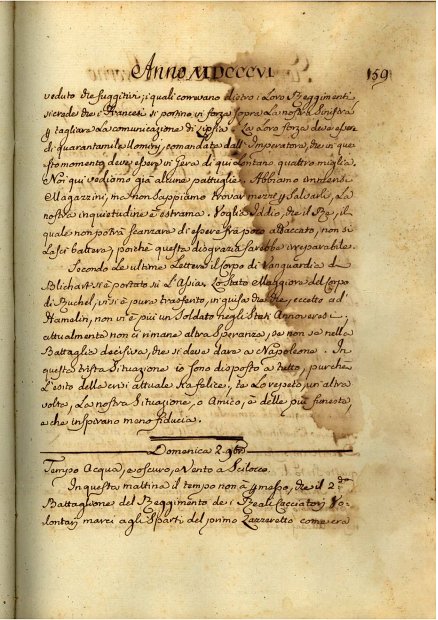 Anno MDCCCVI
159
veduto che fuggitivi; i quali correvano dietro i Loro Reggimenti,
si crede che i Francesi si portino in forza sopra La nostra Sinistra
p tagliare La comunicazione di Lipsia. La Loro forza deve esser
di quarantamila Uomini, comandati dall'Imperatore, che in que
sto momento deve essere in Gera di qui lontano quattro miglia.
Noi qui vediamo già alcune pattuglie. Abbiamo immensi
Magazzini, ma non Sappiamo trovar mezzi p Salvarli, La
nostra inquietudine è estrema. Voglia Iddio, che il Rè, il
quale non potrà scanzare di essere frà poco attaccato, non si
Lasci battere, poichè questa disgrazia sarebbe irreparabile.
Secondo Le ultime Lettere il Corpo di Vanguardia di
Blichart si è portato si L'Assia. Lo Stato Maggiore del Corpo
di Buchel, vi si è pure trasferito, in guisa che che, eccetto ad
Hamelin, non vi è più un Soldato negli Stati Annoveresi;
attualmente non ci rimane altra Speranza, se non se nella
Battaglia decisiva, che si deve dare a Napoleone. In
questa trista Situazione io sono disposto a tutto, purchè
L'esito della crisi attuale sia felice, te Lo repeto, un'altra
volta, La nostra Situazione, o Amico, è delle più funeste,
e che inspirano meno fiducia.
Domenica 2. 9bre
Tempo Acqua, e oscuro, e Vento a Scilocco.
In questa mattina il tempo non à permesso, che il 2do
Battaglione del Reggimento de i Reali Cacciatori Vo-
lontarj marci agli Sparti del primo Lazzeretto come era